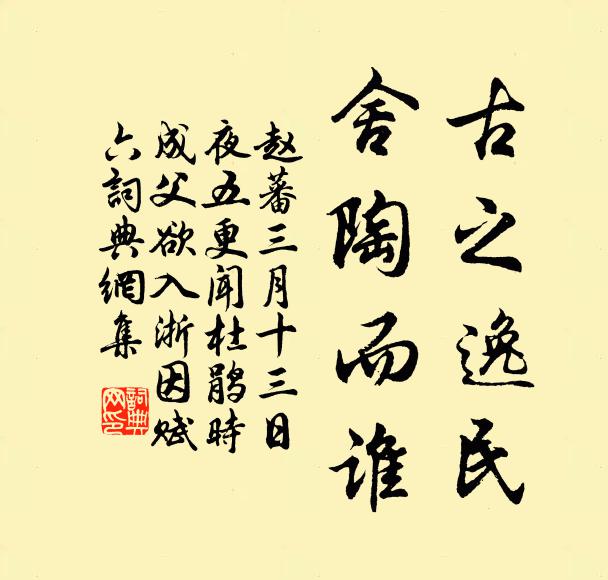 古之逸民
舍陶而谁
赵蕃三月十三日
夜五更闻杜鹃時
成父欲入浙因赋
六詞典網集
詞典
网印